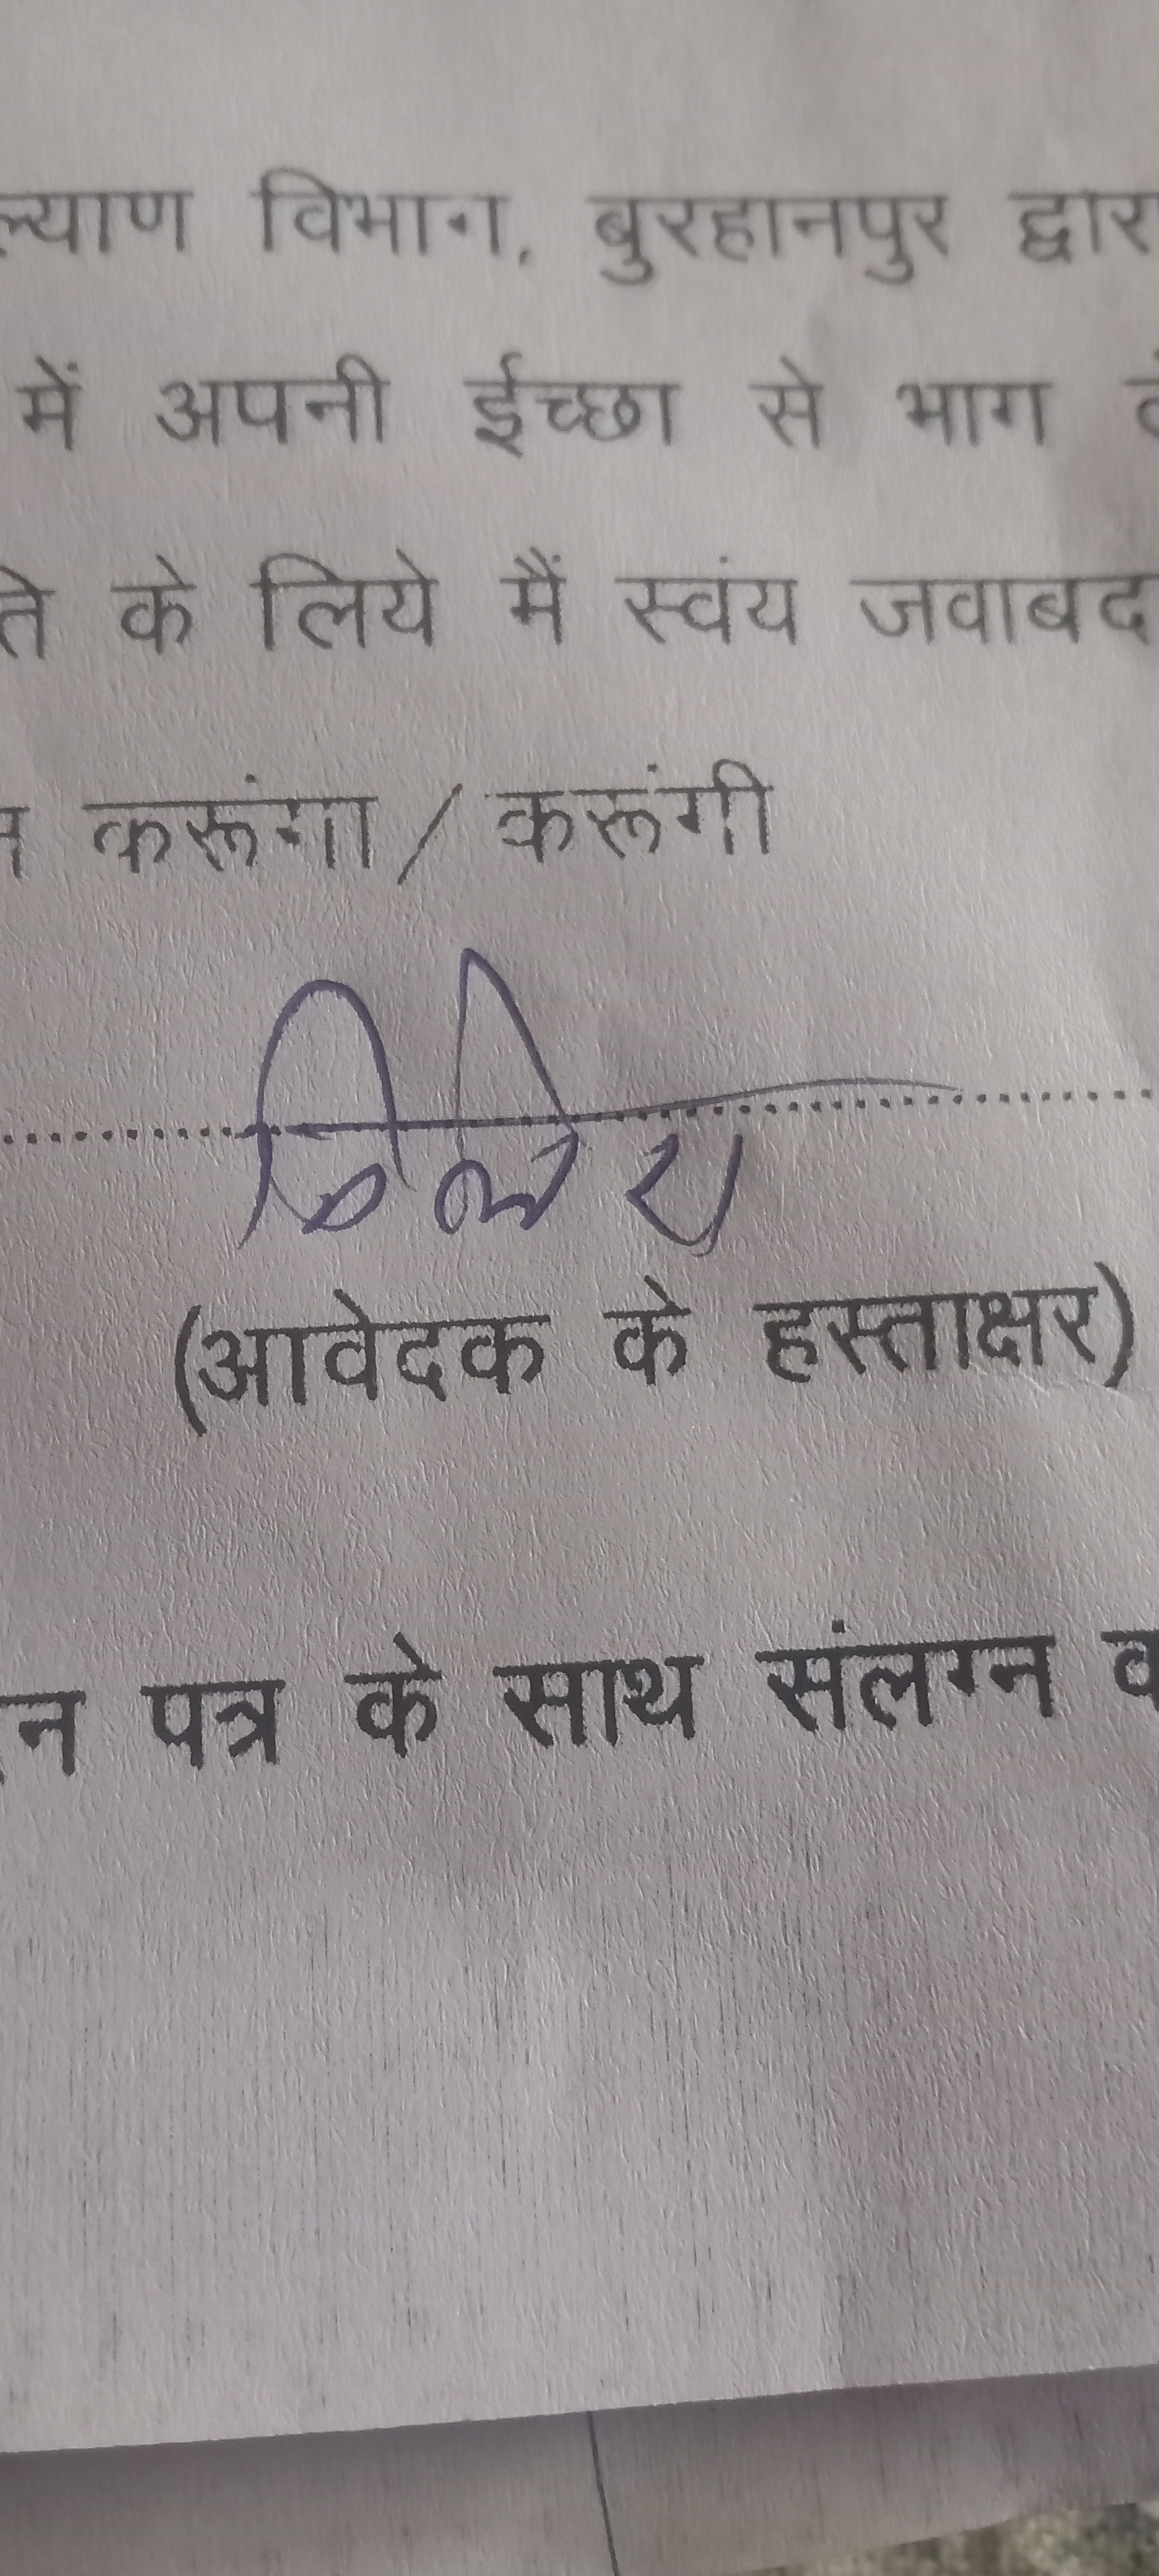 ल्याण विभाग, बुरहानपुर द्वारा
में अपनी ईच्छा से भाग
ति के लिये मैं स्वंय जवाबद
करूंगा / करूंगी
(आवेदक के हस्ताक्षर)
न पत्र के साथ संलग्न